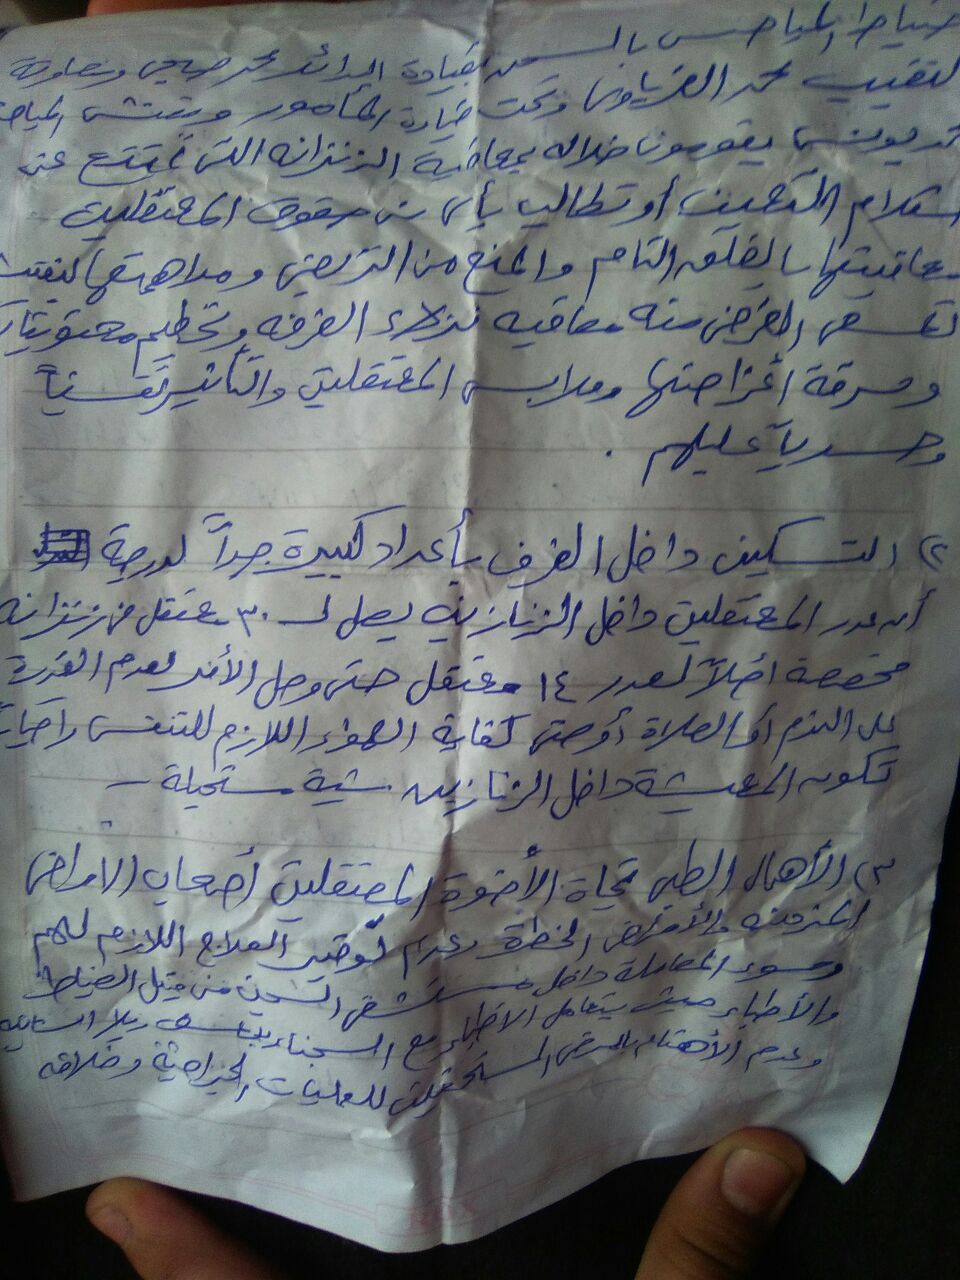 ضباط المباحث بالسجن بقيادة الرائد محمد صبحي ومعاونة
النقيب محمد وتحت قيادة المأمور ومفتش المباحث
يونس يقومون خلاله بمعاقبة الزنزانه التى تمتنع عن
استلام التعيين أو تطالب بأى من حقوق المعتقلين
معاقبتها بالغلق التام والمنع من التريض ومداهمتها لتفتيش
الغرض منه معاقبه نزلاء الغرفه وتحطيم محتوياتها
وسرقة أغراضها وملابس المعتقلين والتأثير نفسياً
وجسدياً عليهم .
٢) التسكين داخل الغرف بأعداد كبيرة جداً لدرجة
أن عدد المعتقلين داخل الزنازين يصل لـ ٣٠ معتقل فى زنزانه
مخصصة أصلاً لعدد ١٤ معتقل حتى وصل الأمر لعدم القدرة
على النوم أو الصلاة أو حتى كفاية الهواء اللازم للتنفس وأحياناً
تكون المعيشة داخل الزنازين شبة مستحيلة -
٣) الأهمال الطبى تجاة الأخوة المعتقلين أصحاب الامراض
المزمنه والأمراض الخطرة وعدم توفير العلاج اللازم لهم
وسوء المعاملة داخل مستشفى السجن من قبل الضباط
والأطباء حيث يتعامل الاطباء مع السجناء
وعدم الأهتمام بالمرضى المستحقين للعمليات الجراحية وخلافه